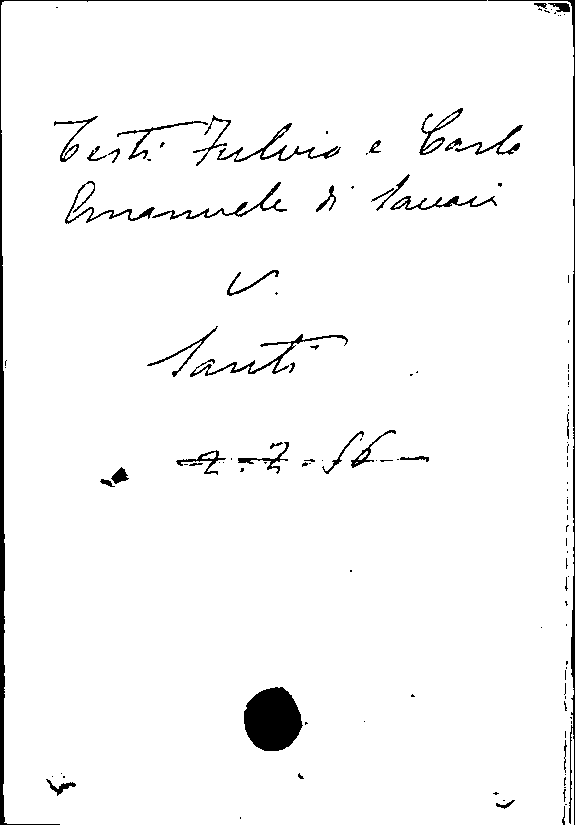 Testi Fulvio e Carlo
Emanuele di Savoia
V.
Santi
2.2.56